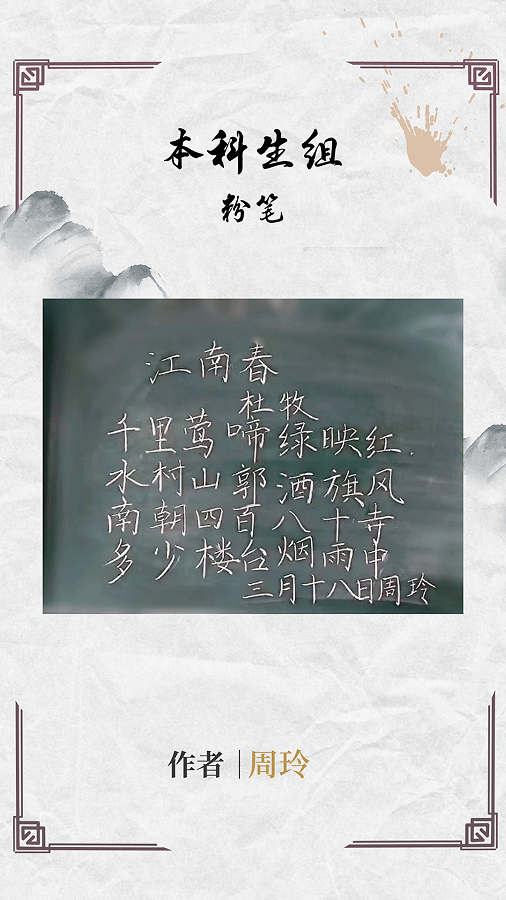 本科生组
粉笔
江南春
杜牧
千里莺啼绿映红.
水村山郭酒旗风
南朝四百八十寺
多少楼台烟雨中
三月十八日周玲
作者|周玲